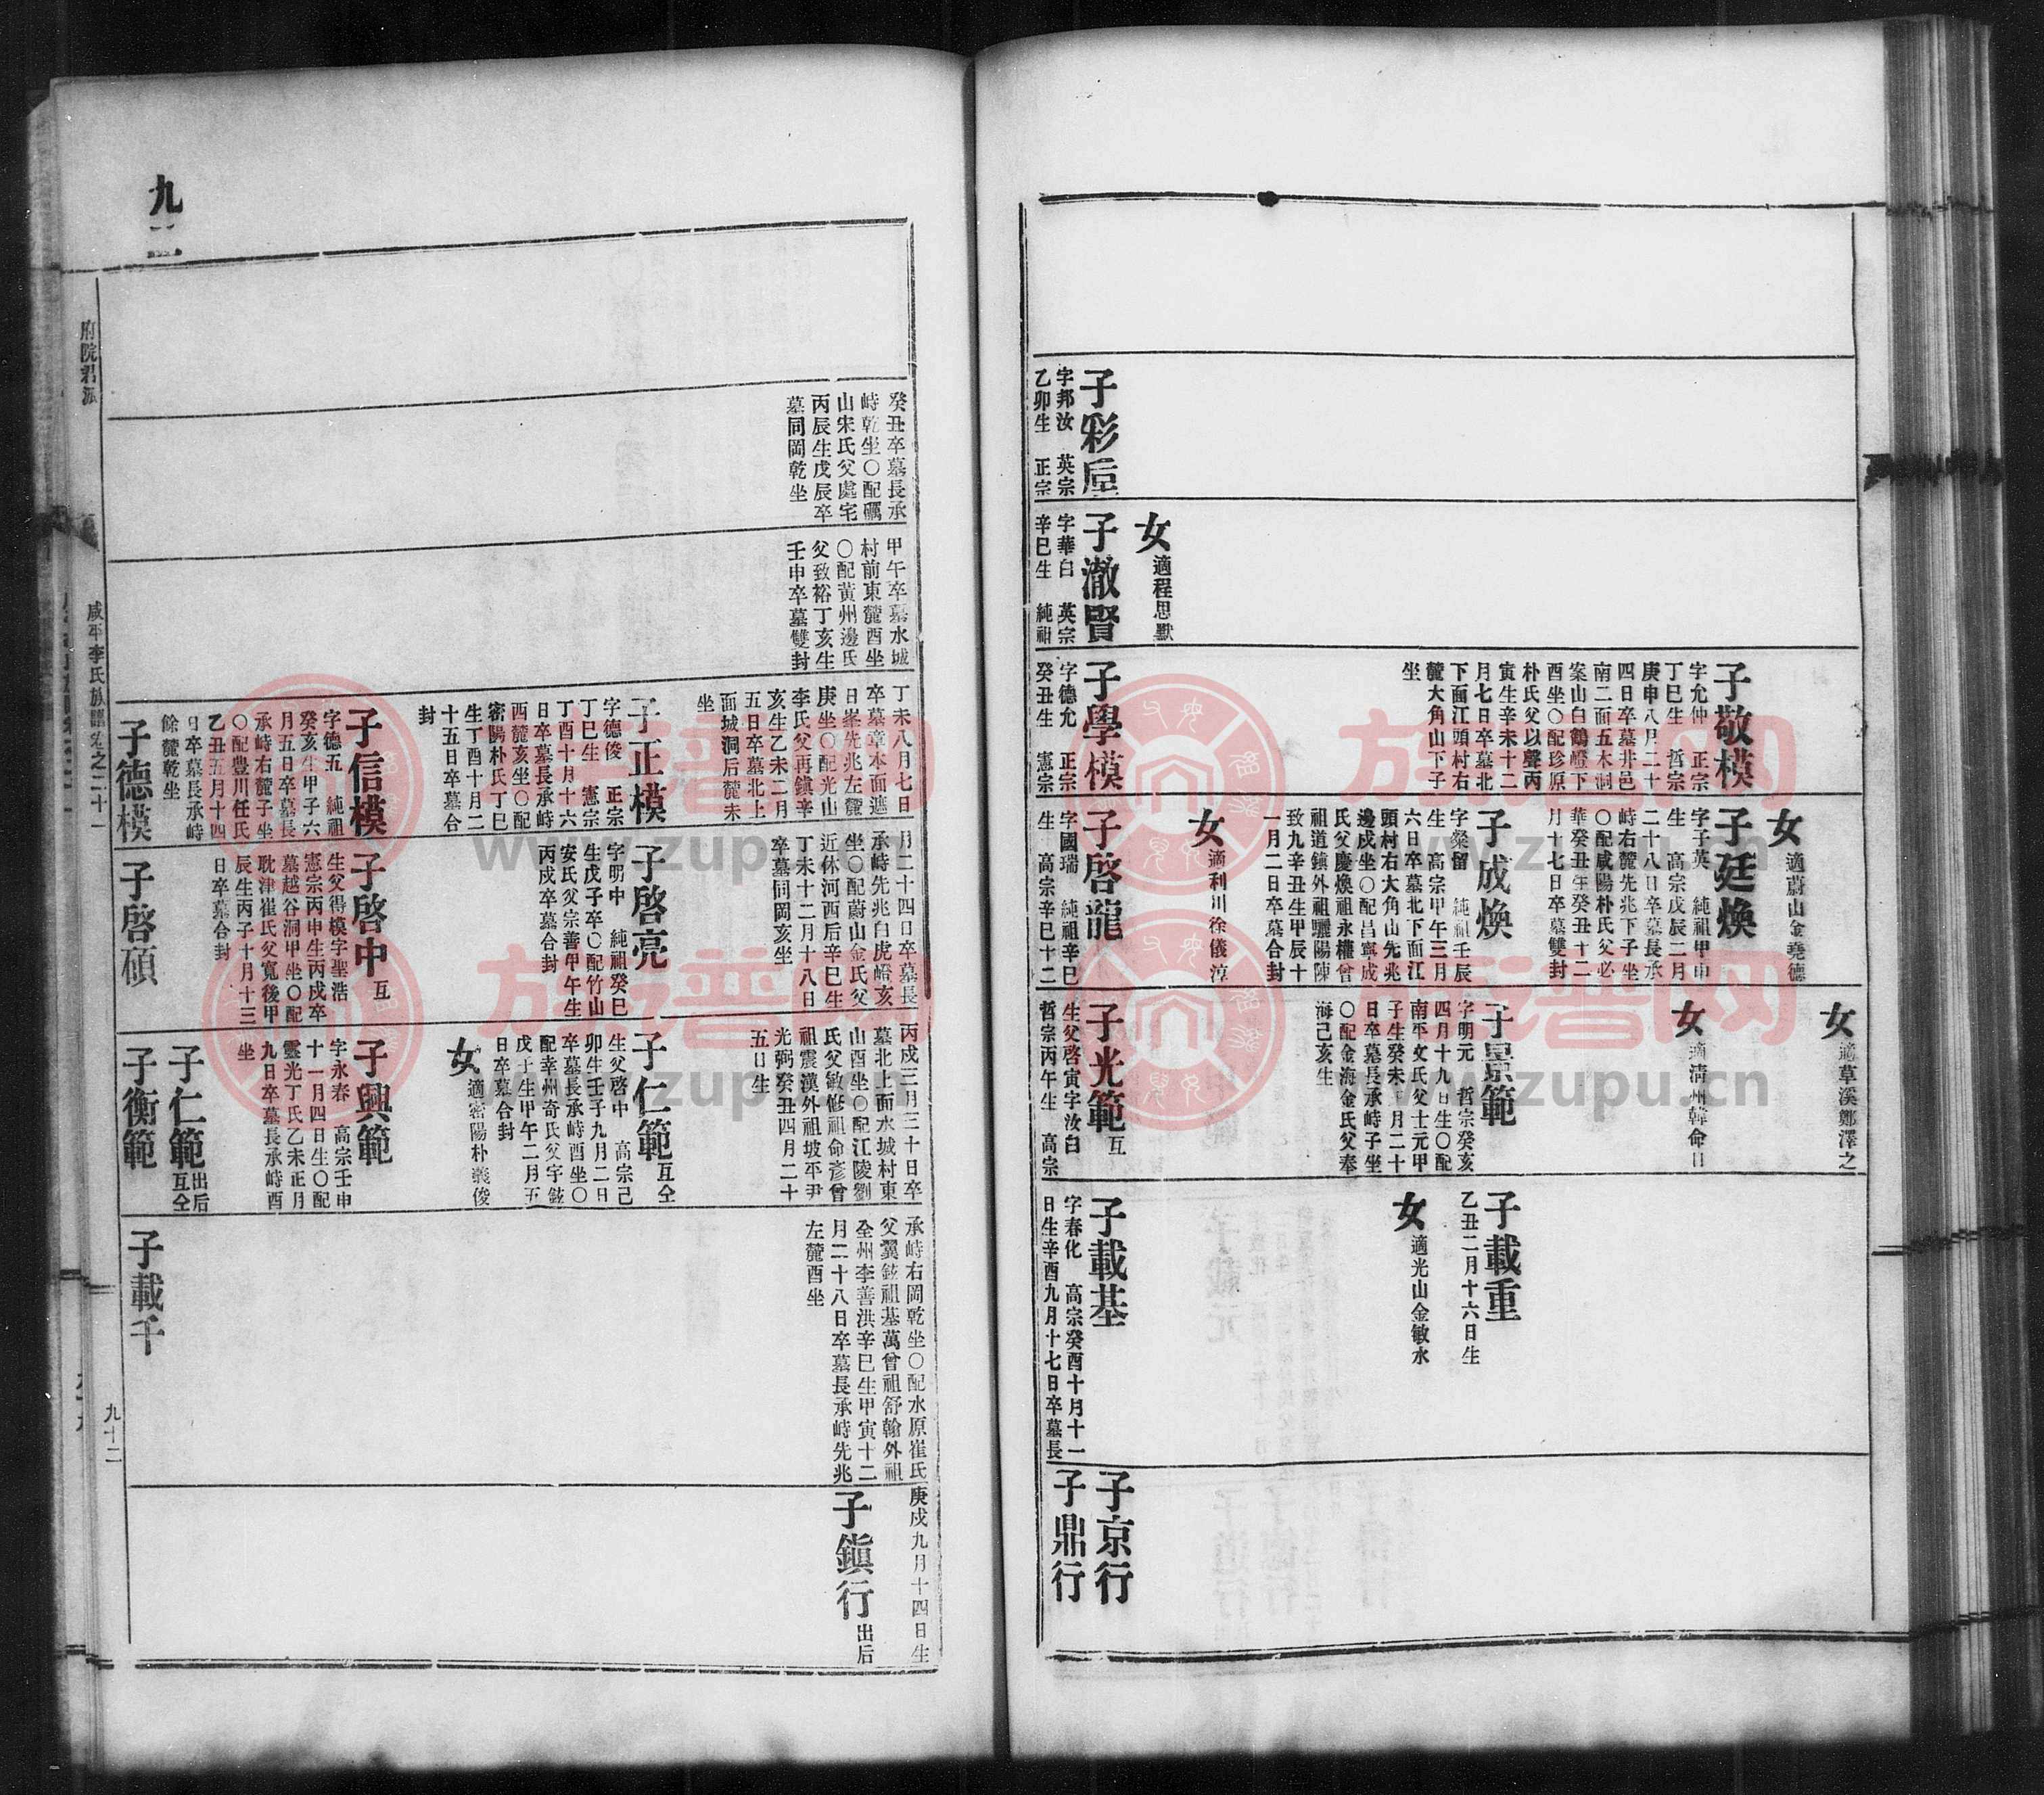 子彩后
字邦汝　英宗
乙卯生　正宗
女
適程思默
子澈賢
字華白　英宗
辛巳生　純祖
子敬模
字允仲　正宗
丁巳生　哲宗
庚申八月二十
四日卒墓井邑
南二面五木洞
案山白鶴嶝下
酉坐〇配珍原
朴氏父以聲丙
寅生辛未十二
月七日卒墓北
下面江頭村右
麓大角山下子
坐
子學模
字德允　正宗
癸丑生　憲宗
女
適蔚山金堯德
子廷煥
字子英　純祖甲申
生　高宗戊辰二月
二十八日卒墓長承
峙右麓先兆下子坐
〇配咸陽朴氏父必
華癸丑生癸丑十二
月十七日卒墓雙封
子成煥
字粲留　純祖壬辰
生　高宗甲午三月
六日卒墓北下面江
頭村右大角山先兆
邊戌坐〇配昌寧成
氏父慶煥祖永權曾
祖道鎮外祖驪陽陳
致九辛丑生甲辰十
一月二日卒墓合封
女
適利川徐儀淳
子啓龍
字國瑞　純祖辛巳
生　高宗辛巳十二
女
適草溪鄭澤之
女
適清州韓命日
子景範
字明元　哲宗癸亥
四月十九日生〇配
南平文氏父士元甲
子生癸未十月二十
日卒墓長承峙子坐
〇配金海金氏父奉
海己亥生
子光範互
生父啓寅字汝白
哲宗丙午生　高宗
子載重
乙丑二月十六日生
女
適光山金敏水
子載基
字春化　高宗癸酉十月十一
日生辛酉九月十七日卒墓長
子京行
子鼎行
癸丑卒墓長承
峙乾坐〇配礪
山宋氏父處宅
丙辰生戊辰卒
墓同岡乾坐
甲午卒墓水城
村前東麓酉坐
〇配黃州邊氏
父致裕丁亥生
壬申卒墓雙封
丁未八月七日
卒墓章本面遮
日峯先兆左麓
庚坐〇配光山
李氏父再鎮辛
亥生乙未二月
五日卒墓北上
面城洞后麓未
坐
子正模
字德俊　正宗
丁巳生　憲宗
丁酉十月十六
日卒墓長承峙
酉麓亥坐〇配
密陽朴氏丁巳
生丁酉十月二
十五日卒墓合
封
子信模
字德五　純祖
癸亥生甲子六
月五日卒墓長
承峙右麓子坐
〇配豊川任氏
乙丑五月十四
日卒墓長承峙
餘麓乾坐
子德模
月二十四日卒墓長
承峙先兆白虎嶝亥
坐〇配蔚山金氏父
近休河西后辛巳生
丁未十二月十八日
卒墓同岡亥坐
子啓亮
字明中　純祖癸巳
生戊子卒〇配竹山
安氏父宗善甲午生
丙戌卒墓合封
子啓中互
生父得模字聖浩
憲宗丙申生丙戌卒
墓越谷洞甲坐〇配
耽津崔氏父寬後甲
辰生丙子十月十三
日卒墓合封
子啓碩
丙戌三月三十日卒
墓北上面水城村東
山酉坐〇配江陵劉
氏父敏修祖命彥曾
祖震漢外祖坡平尹
光弼癸丑四月二十
五日生
子仁範互仝
生父啓中　高宗己
卯生壬子九月二日
卒墓長承峙酉坐〇
配幸州奇氏父宇鉉
戊子生甲午二月五
日卒墓合封
女
適密陽朴義俊
子興範
字永春　高宗壬申
十一月四日生〇配
靈光丁氏乙未正月
九日卒墓長承峙酉
坐
子仁範出后互仝
子衡範
承峙右岡乾坐〇配水原崔氏
父翼鉉祖基萬曾祖舒翰外祖
全州李善洪辛巳生甲寅十二
月二十八日卒墓長承峙先兆
左麓酉坐
子載千
庚戌九月十四日生
子鎭行出后
府院君派
咸平李氏族譜卷之二十一
九十二